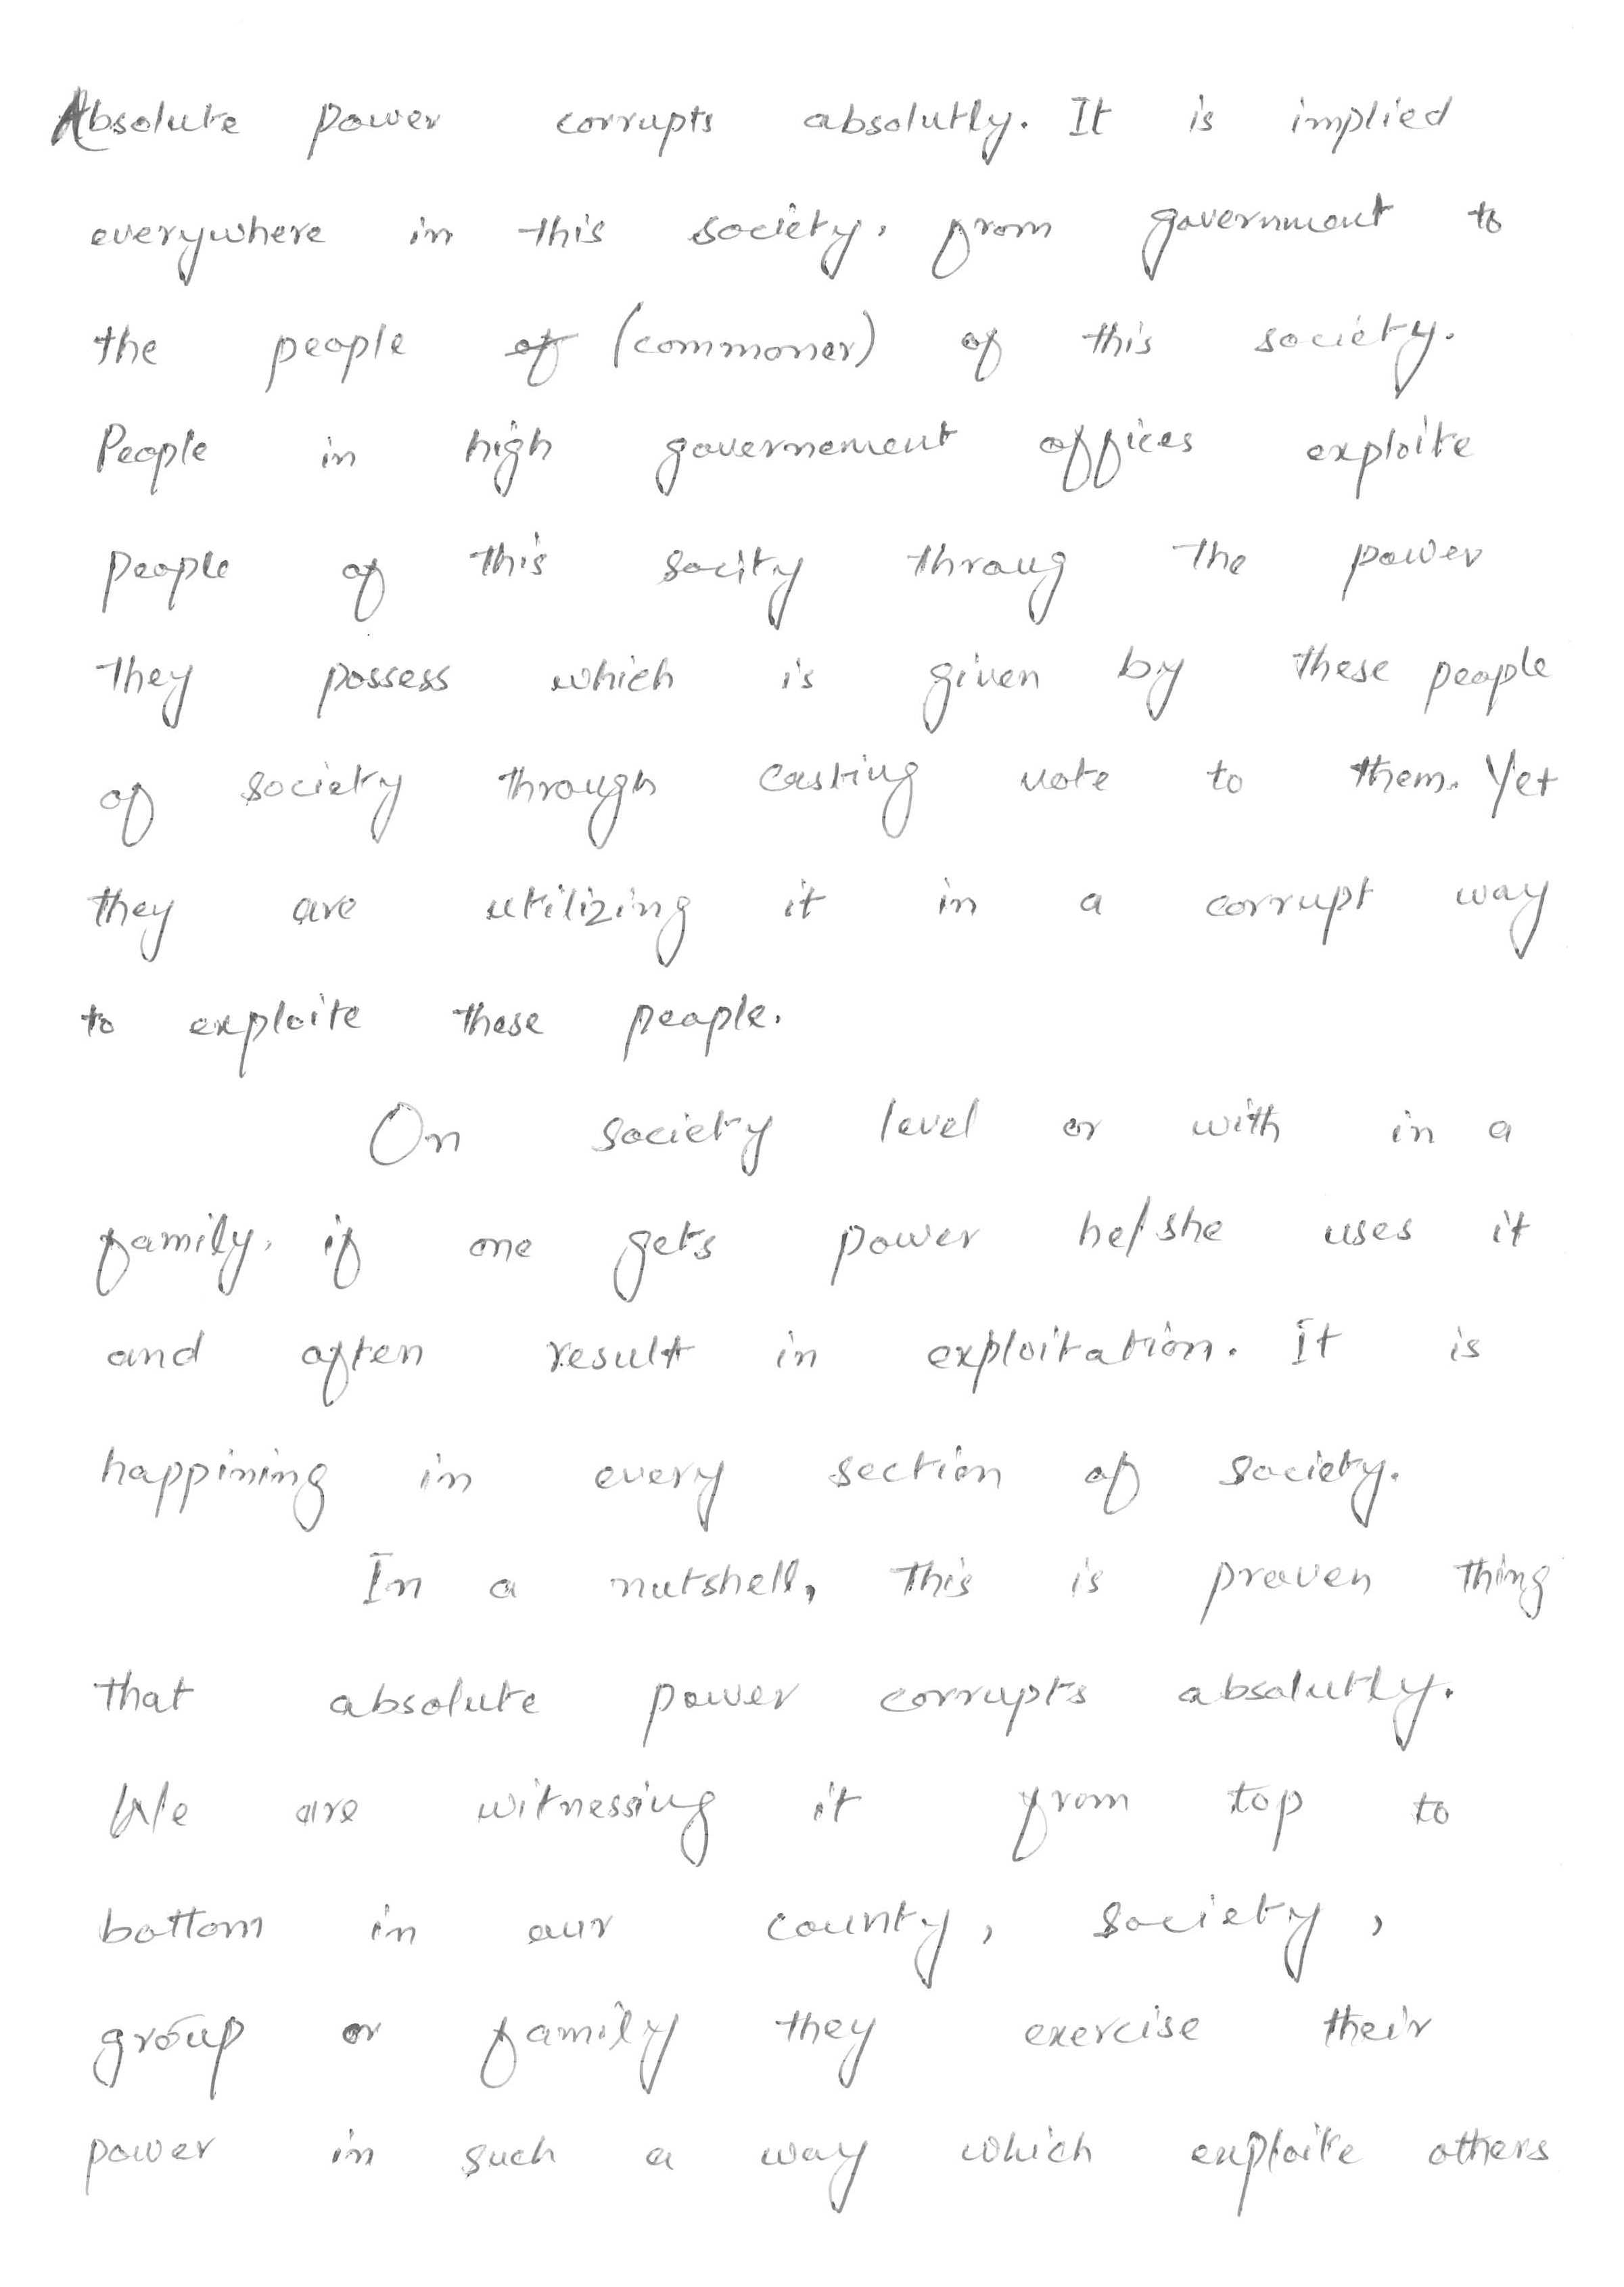 Absolute power corrupts absolutly. It is implied
everywhere in this society, from government to
the people of (commoner) of this society.
People in high governement offices exploite
people of this socity throug the power
they possess which is given by these people
of society through casting vote to them. Yet
they are utilizing it in a corrupt way
to exploite these people.
On society level or with in a
family, if one gets power he/she uses it
and often result in exploitation. It is
happining in every section of society.
In a nutshell, this is proven thing
that absolute power corrupts absolutly.
We are witnessing it from top to
bottom in our county, society,
group or family they exercise their
power in such a way which exploite others